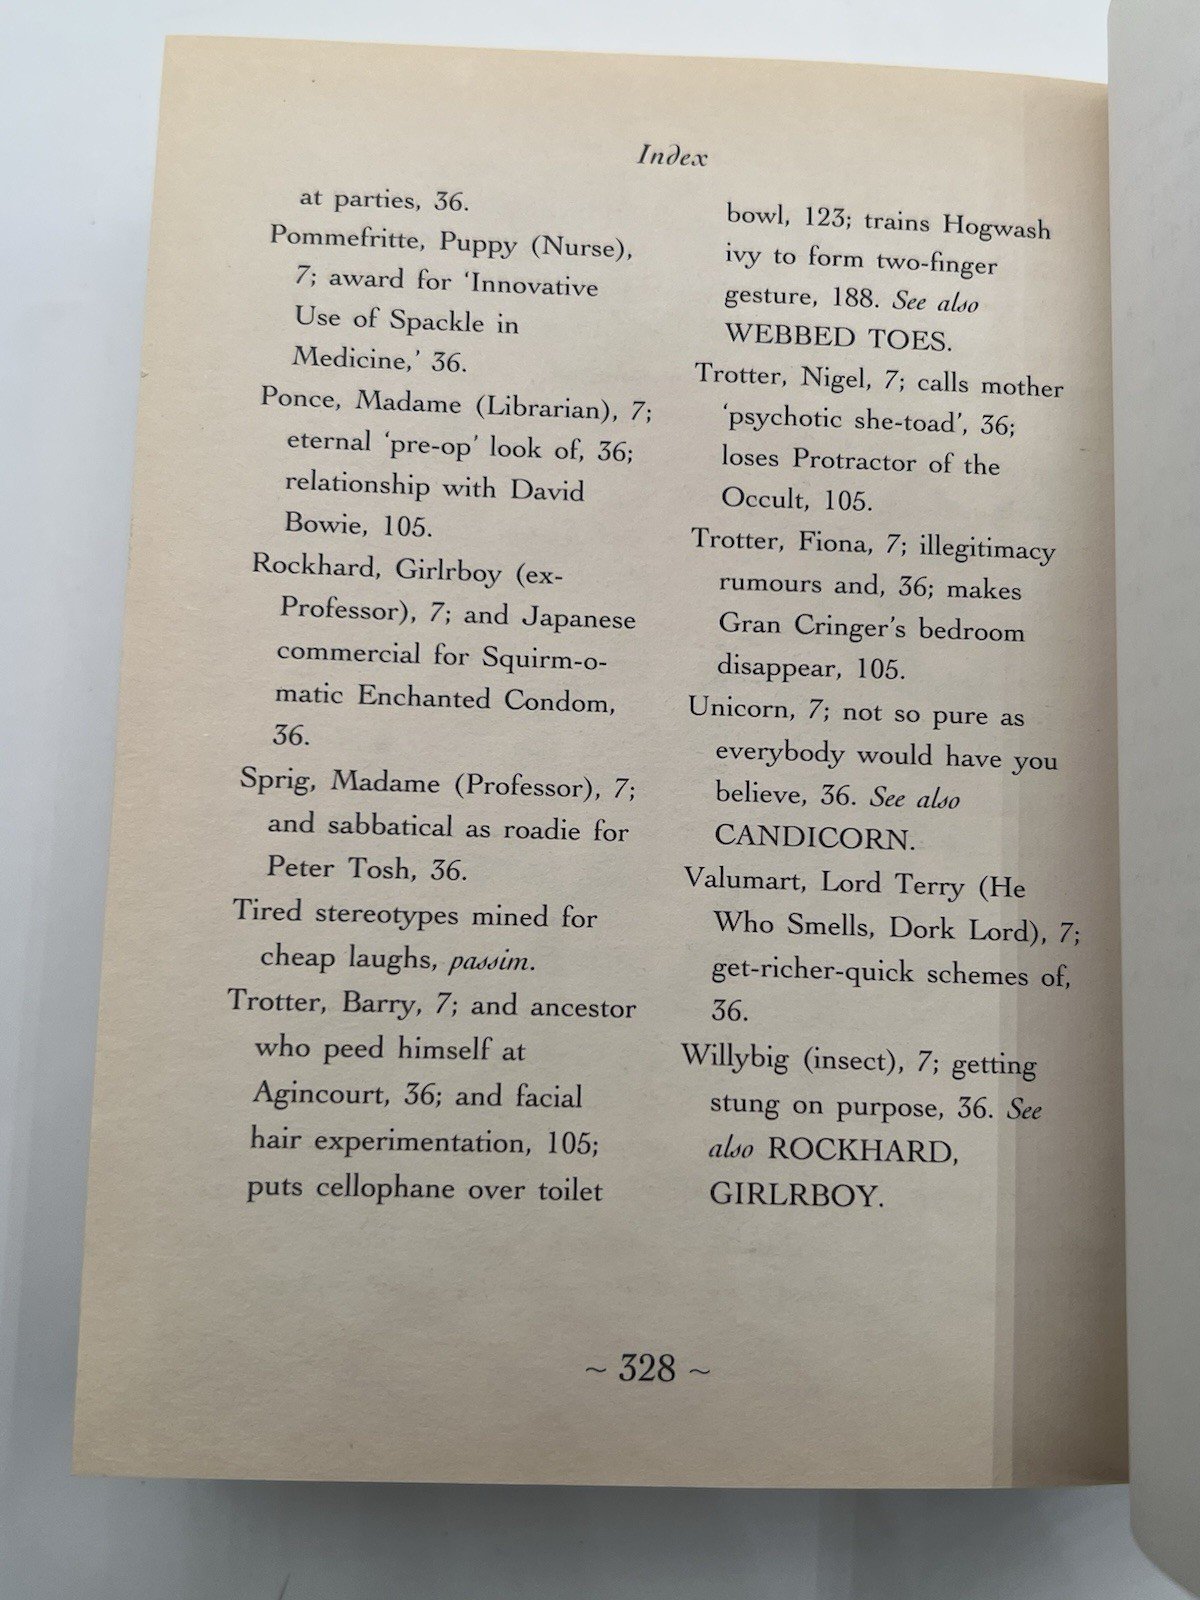 Index
at parties, 36.
Pommefritte, Puppy (Nurse),
7; award for ‘Innovative
Use of Spackle in
Medicine,’ 36.
Ponce, Madame (Librarian), 7;
eternal ‘pre-op’ look of, 36;
relationship with David
Bowie, 105.
Rockhard, Girlrboy (ex-
Professor), 7; and Japanese
commercial for Squirm-o-
matic Enchanted Condom,
36.
Sprig, Madame (Professor), 7;
and sabbatical as roadie for
Peter Tosh, 36.
Tired stereotypes mined for
cheap laughs, passim.
Trotter, Barry, 7; and ancestor
who peed himself at
Agincourt, 36; and facial
hair experimentation, 105;
puts cellophane over toilet
bowl, 123; trains Hogwash
ivy to form two-finger
gesture, 188. See also
WEBBED TOES.
Trotter, Nigel, 7; calls mother
‘psychotic she-toad’, 36;
loses Protractor of the
Occult, 105.
Trotter, Fiona, 7; illegitimacy
rumours and, 36; makes
Gran Cringer’s bedroom
disappear, 105.
Unicorn, 7; not so pure as
everybody would have you
believe, 36. See also
CANDICORN.
Valumart, Lord Terry (He
Who Smells, Dork Lord), 7;
get-richer-quick schemes of,
36.
Willybig (insect), 7; getting
stung on purpose, 36. See
also ROCKHARD,
GIRLRBOY.
~ 328 ~